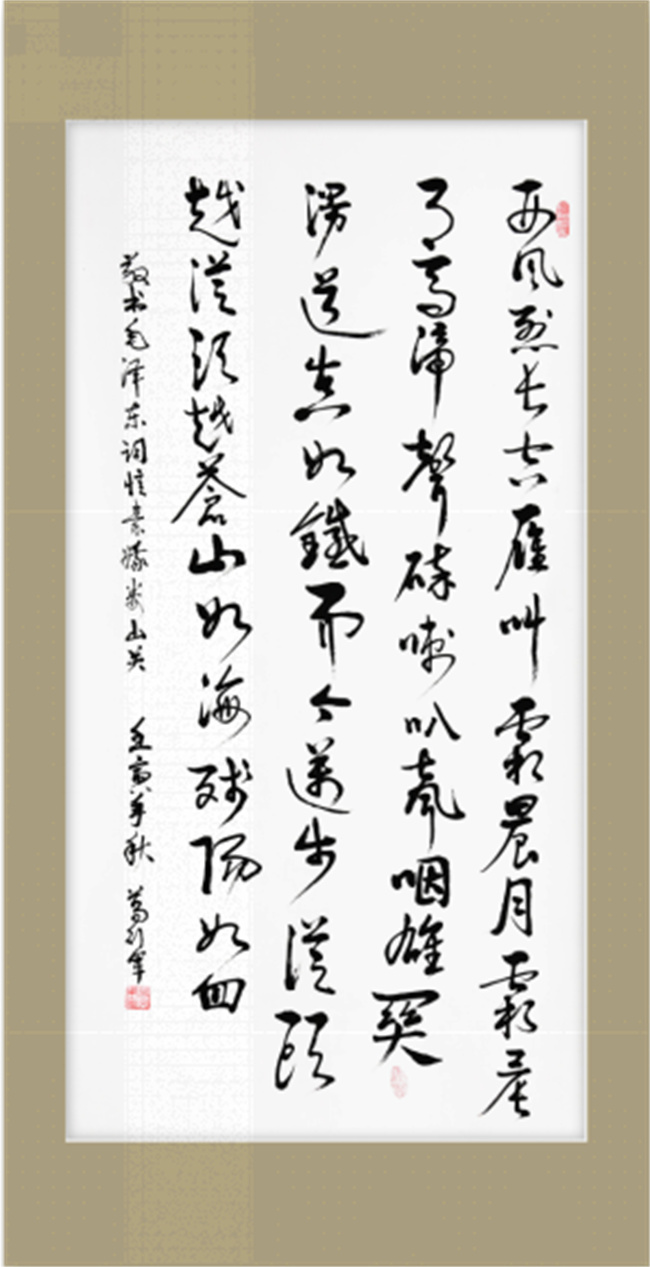 西風烈長空雁叫霜晨月霜晨
月馬蹄聲碎喇叭聲咽雄關
漫道真如鐵而今邁步從頭
越從頭越蒼山如海殘陽如血
敬书毛泽东词忆秦娥娄山关 壬寅年秋